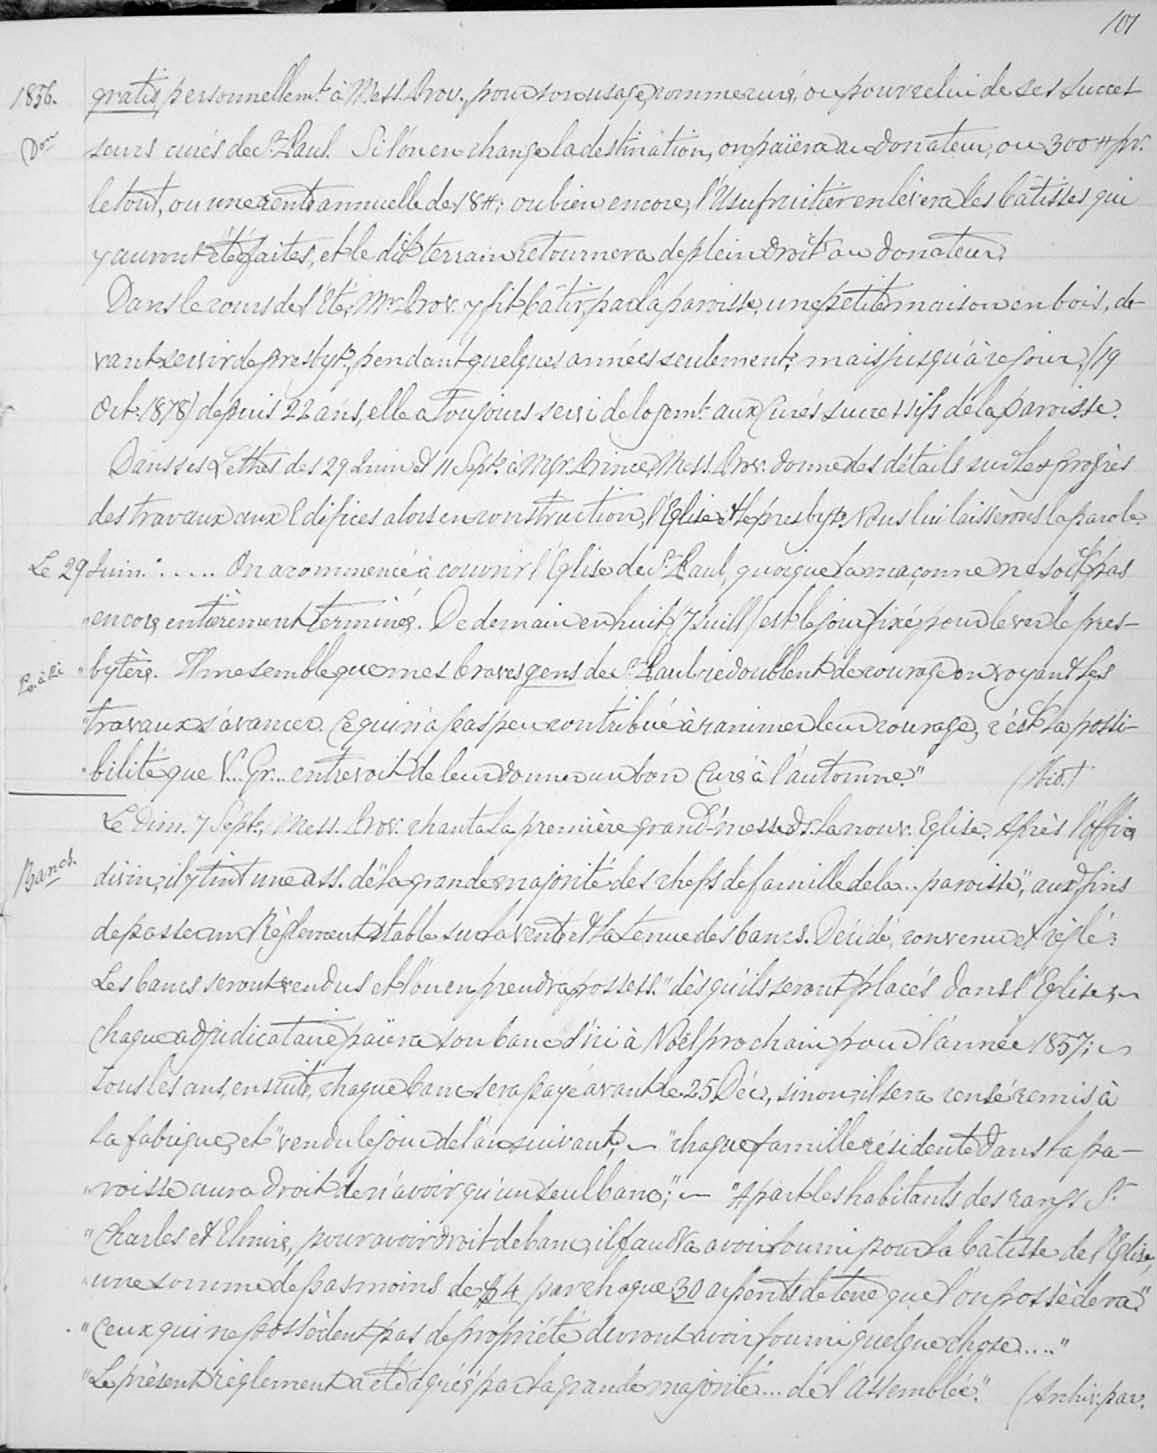 101
1856. gratis, personnellemt. à Mess. Prov., pour son usage, comme curé, ou pour celui de ses succes
Don seurs curés de St. Paul. Si l'on en change la destination, on païera au Donateur, ou 300 # pr.
le tout, ou une rente annuelle de 18 #; ou bien encore, l'Usufruitier enlèvera les bâtisses qui
y auront été faites, et le dit terrain retournera de plein droit au donateur.
Dans le cours de l'Eté, Mr. Prov. y fit bâtir, par la paroisse, une petite maison en bois, de-
vant servir de presbyt., pendant quelques années seulement; mais jusqu'à ce jour, (19
Oct. 1878) depuis 22 ans, elle a toujours servi de logemt. aux Curés successifs de la paroisse.
Dans ses Lettres des 29 Juin et 11 Sept. à Mgr. Prince, Mess. Prov. donne des détails sur les progrès
des travaux aux Edifices alors en construction, l'Eglise et le presbyt. Nous lui laisserons la parole.
Le 29 Juin: "..... On a commencé à couvrir l'Eglise de St. Paul, quoique la maçonne ne soit pas
"encore entièrement terminée. De demain en huit (7 Juill.) est le jour fixé pour lever le pres-
"bytère. Il me semble que mes braves gens de St. Paul redoublent de courage en voyant les
"travaux s'avancer. Ce qui n'a pas peu contribué à ranimer leur courage, c'est la possi-
"bilité que V... Gr... entrevoit de leur donner un bon Curé à l'automne." (Ibid.)
Le Dim. 7 Sept., Mess. Prov. chanta la première grand'messe ds. la nouv. Eglise. Après l'office
Bancs. divin, il y tint une ass. de "la grande majorité des chefs de famille de la... paroisse", aux fins
de passer un Règlement stable sur la vente et la tenue des bancs. Décidé, convenu et réglé:
Les bancs seront vendus et l'on en prendra possess. "dès qu'ils seront placés dans l'Eglise; ~
Chaque adjudicataire païera son banc d'ici à Noël prochain pour l'année 1857; ~
Tous les ans, ensuite, chaque banc sera payé avant le 25 Déc., sinon, il sera censé remis à
la fabrique, et "vendu le jour de l'an suivant; ~ "chaque famille résidente dans la pa-
"roisse aura droit de n'avoir qu'un seul banc"; ~ "Apart les habitants des rangs St.
"Charles et Elmire, pour avoir droit de banc, il faudra avoir fourni pour la bâtisse de l'Eglise,
"une somme de pas moins de $4 par chaque 30 arpents de terre que l'on possèdera"
"Ceux qui ne possèdent pas de propriété devront avoir fourni quelque chose....."
"Le présent règlement a été agréé par la grande majorité... de l'Assemblée." (Archiv. par.